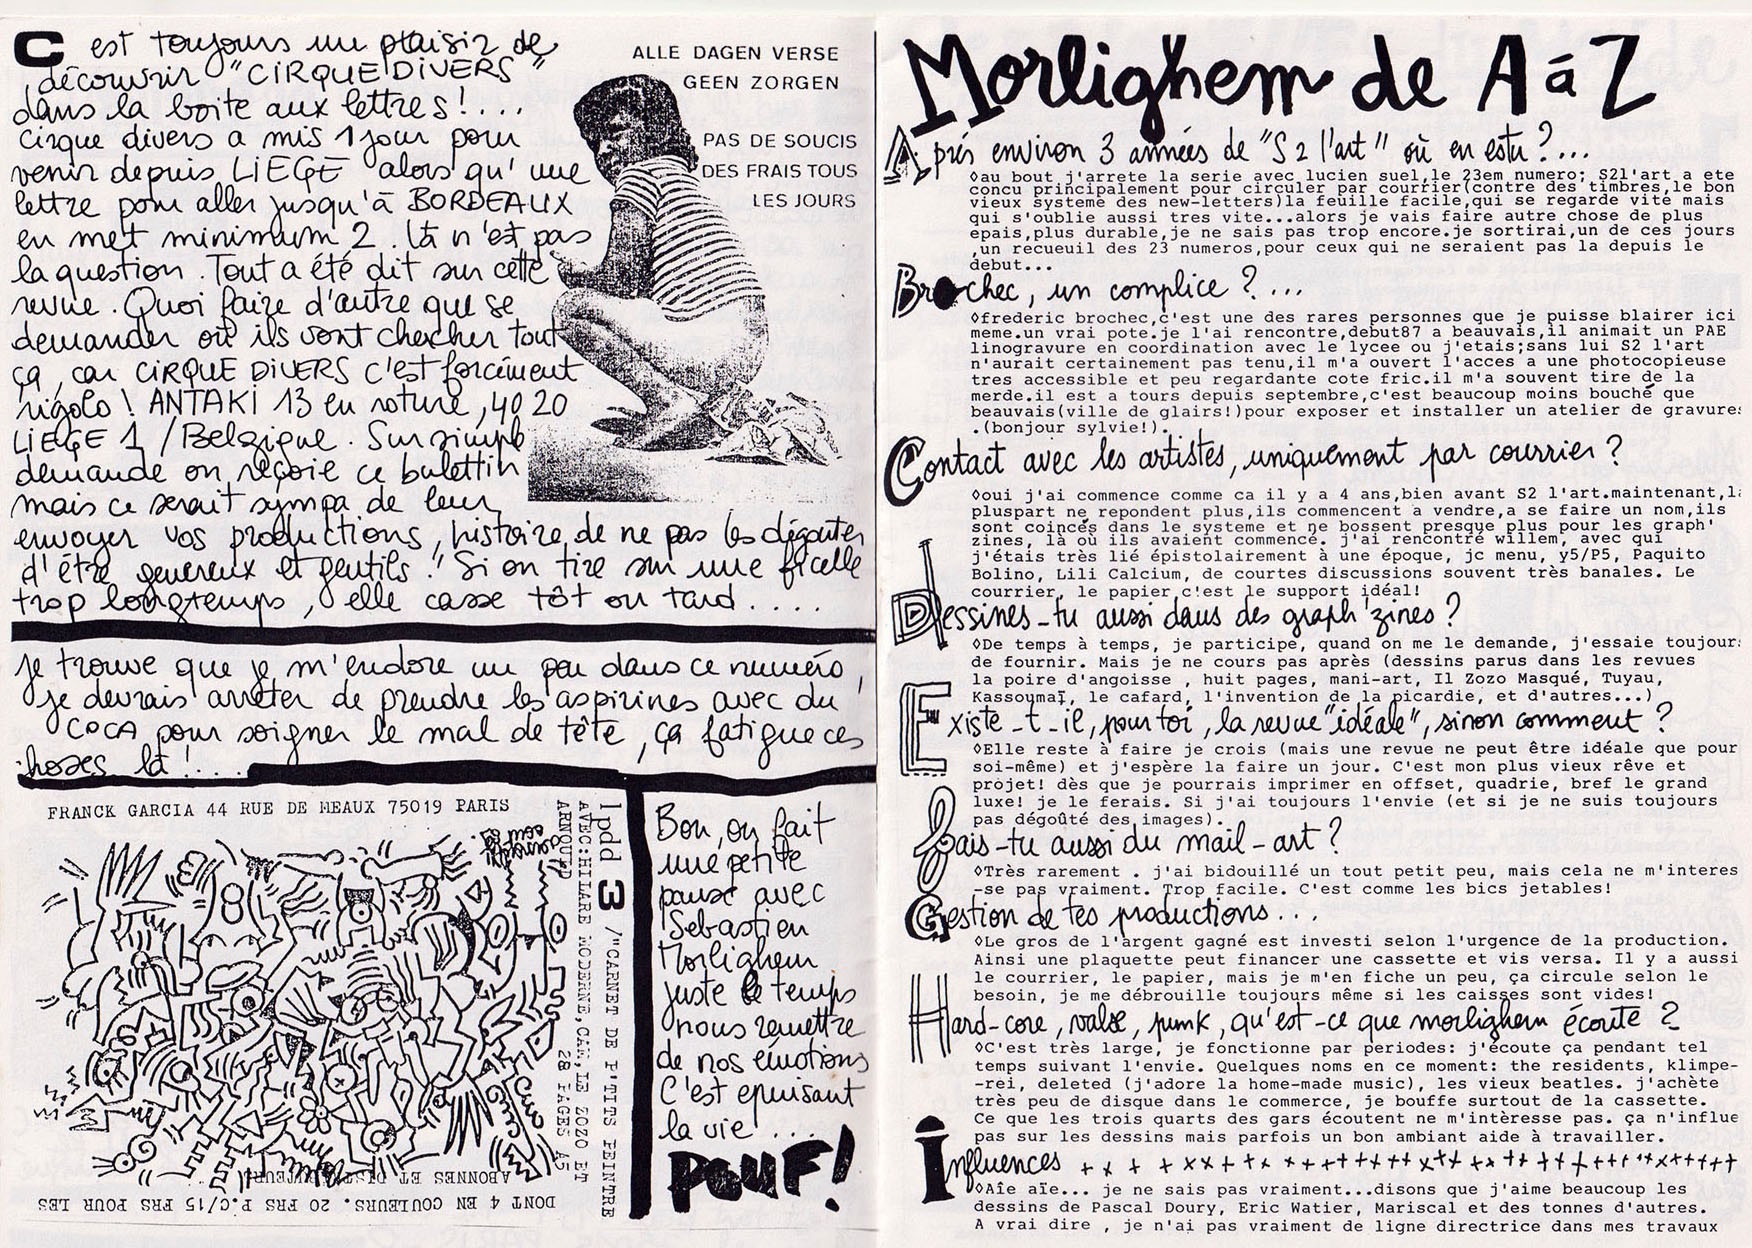 C'est toujours un plaisir de
découvrir "CIRQUE DIVERS"
dans la boite aux lettres !....
Cirque divers a mis 1 jour pour
venir depuis LIEGE alors qu'une
lettre pour aller jusqu'à BORDEAUX
en met minimum 2. Là n'est pas
la question. Tout a été dit sur cette
revue. Quoi faire d'autre que se
demander où ils vont chercher tout
ça, car CIRQUE DIVERS c'est forcément
rigolo ! ANTAKI 13 en roture, 4020
LIEGE 1 / Belgique. Sur simple
demande on reçoie ce bulettin
mais ce serait sympa de leur
envoyer vos productions, histoire de ne pas les dégouter
d'être genereux et gentils. "Si on tire sur une ficelle
trop longtemps, elle casse tôt ou tard ....
ALLE DAGEN VERSE
GEEN ZORGEN
PAS DE SOUCIS
DES FRAIS TOUS
LES JOURS
Je trouve que je m'endore un peu dans ce numéro,
je devrais arrêter de prendre les aspirines avec du
COCA pour soigner le mal de tête, ça fatigue ces
choses là !....
FRANCK GARCIA 44 RUE DE MEAUX 75019 PARIS
lpdd 3 /"CARNET DE P'TITS PEINTRE
AVEC:HILARE MODERNE,CAE,LE ZOZO ET
ARNOULD 28 PAGES A5
DONT 4 EN COULEURS. 20 FRS P.C/15 FRS POUR LES
ABONNES ET DISTRIBUTEURS
Bon, on fait
une petite
pause avec
Sebastien
Morlighem
juste le temps
nous remettre
de nos émotions
C'est epuisant
la vie ...
POUF!
Morlighem de A à Z
Après environ 3 années de "S 2 l'art" où en es tu ?...
◊au bout j'arrete la serie avec lucien suel,le 23em numero; S21'art a ete
concu principalement pour circuler par courrier(contre des timbres,le bon
vieux systeme des new-letters)la feuille facile,qui se regarde vite mais
qui s'oublie aussi tres vite...alors je vais faire autre chose de plus
epais,plus durable,je ne sais pas trop encore.je sortirai,un de ces jours
,un recueuil des 23 numeros,pour ceux qui ne seraient pas la depuis le
debut...
Brochec, un complice ?...
◊frederic brochec,c'est une des rares personnes que je puisse blairer ici
meme.un vrai pote.je l'ai rencontre,debut87 a beauvais,il animait un PAE
linogravure en coordination avec le lycee ou j'etais;sans lui S2 l'art
n'aurait certainement pas tenu,il m'a ouvert l'acces a une photocopieuse
tres accessible et peu regardante cote fric.il m'a souvent tire de la
merde.il est a tours depuis septembre,c'est beaucoup moins bouché que
beauvais(ville de glairs!)pour exposer et installer un atelier de gravures
.(bonjour sylvie!).
Contact avec les artistes, uniquement par courrier ?
◊oui j'ai commence comme ca il y a 4 ans,bien avant S2 l'art.maintenant,la
pluspart ne repondent plus,ils commencent a vendre,a se faire un nom,ils
sont coincés dans le systeme et ne bossent presque plus pour les graph'
zines, là où ils avaient commencé. j'ai rencontré willem, avec qui
j'étais très lié épistolairement à une époque, jc menu, y5/P5, Paquito
Bolino, Lili Calcium, de courtes discussions souvent très banales. Le
courrier, le papier,c'est le support idéal!
Dessines-tu aussi dans des graph'zines ?
◊De temps à temps, je participe, quand on me le demande, j'essaie toujours
de fournir. Mais je ne cours pas après (dessins parus dans les revues
la poire d'angoisse , huit pages, mani-art, Il Zozo Masqué, Tuyau,
Kassoumaï, le cafard, l'invention de la picardie, et d'autres...)
Existe-t-il, pour toi, la revue "idéale", sinon comment ?
◊Elle reste à faire je crois (mais une revue ne peut être idéale que pour
soi-même) et j'espère la faire un jour. C'est mon plus vieux rêve et
projet! dès que je pourrais imprimer en offset, quadrie, bref le grand
luxe! je le ferais. Si j'ai toujours l'envie (et si je ne suis toujours
pas dégoûté des images).
Fais-tu aussi du mail-art ?
◊Très rarement . j'ai bidouillé un tout petit peu, mais cela ne m'interes
-se pas vraiment. Trop facile. C'est comme les bics jetables!
Gestion de tes productions...
◊Le gros de l'argent gagné est investi selon l'urgence de la production.
Ainsi une plaquette peut financer une cassette et vis versa. Il y a aussi
le courrier, le papier, mais je m'en fiche un peu, ça circule selon le
besoin, je me débrouille toujours même si les caisses sont vides!
Hard-core, valse, punk, qu'est-ce que morlighem écoute ?
◊C'est très large, je fonctionne par periodes: j'écoute ça pendant tel
temps suivant l'envie. Quelques noms en ce moment: the residents, klimpe-
-rei, deleted (j'adore la home-made music), les vieux beatles. j'achète
très peu de disque dans le commerce, je bouffe surtout de la cassette.
Ce que les trois quarts des gars écoutent ne m'intèresse pas. ça n'influe
pas sur les dessins mais parfois un bon ambiant aide à travailler.
Influences
◊Aîe aïe... je ne sais pas vraiment...disons que j'aime beaucoup les
dessins de Pascal Doury, Eric Watier, Mariscal et des tonnes d'autres.
A vrai dire , je n'ai pas vraiment de ligne directrice dans mes travaux